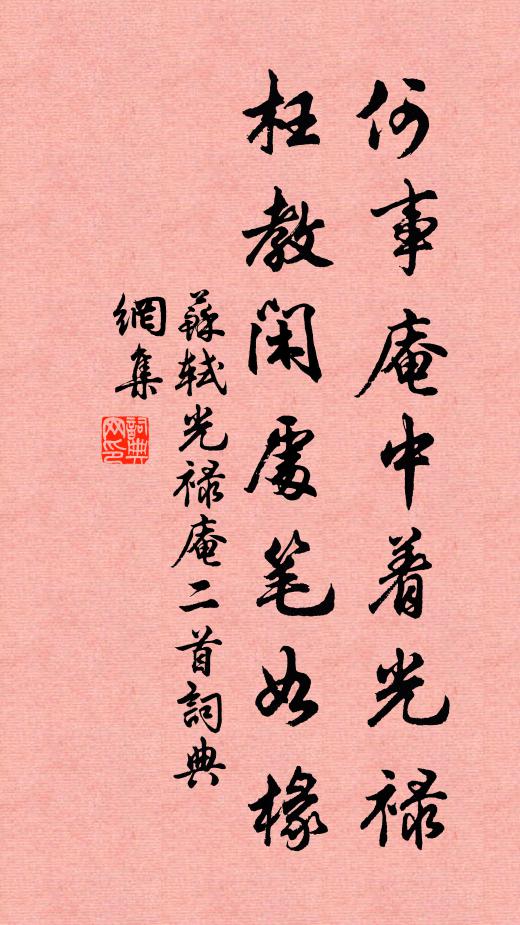 何事庵中着光禄
枉教閑處笔如椽
蘇軾光禄庵二首詞典
網集
詞典
网印